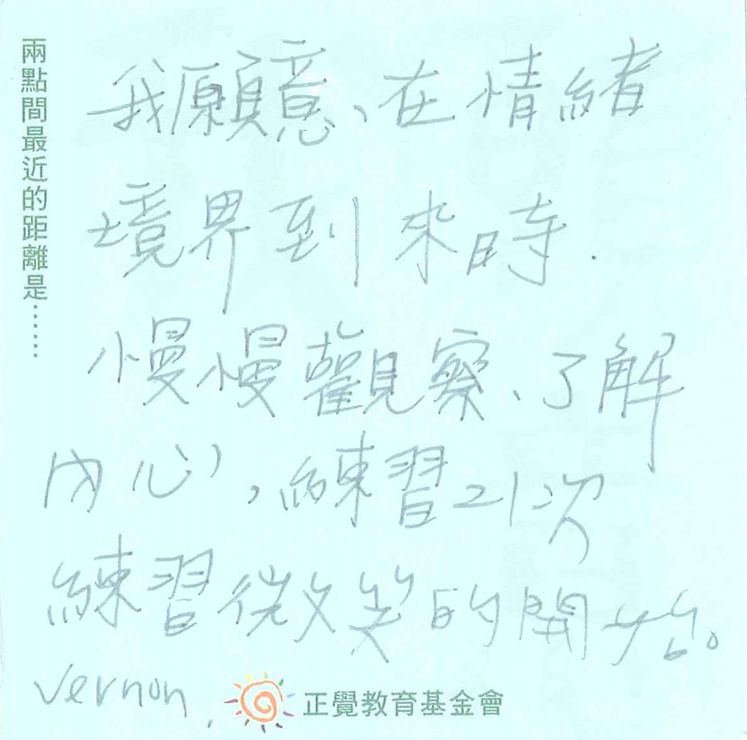 兩點間最近的距離是……
我願意、在情緒
境界到來時.
慢慢觀察、了解
內心,練習21次
練習微笑的開始。
Vernon.
正覺教育基金會